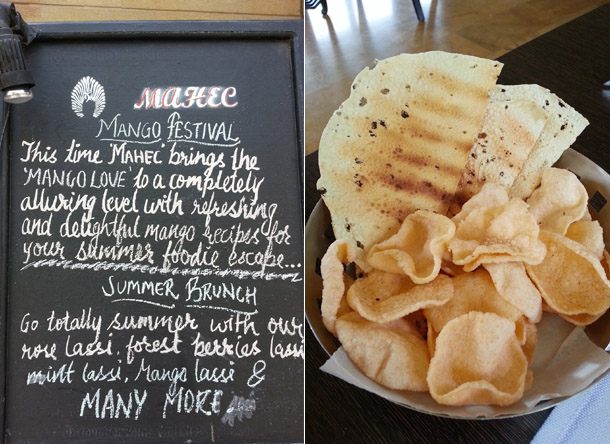 MAHEC
MANGO FESTIVAL
This time MAHEC brings the
'MANGO LOVE' to a completely
alluring level with refreshing
and delightful mango recipes for
your summer foodie escape...
SUMMER BRUNCH
Go totally summer with our
rose lassi, forest berries lassi
mint lassi, Mango lassi &
MANY MORE.